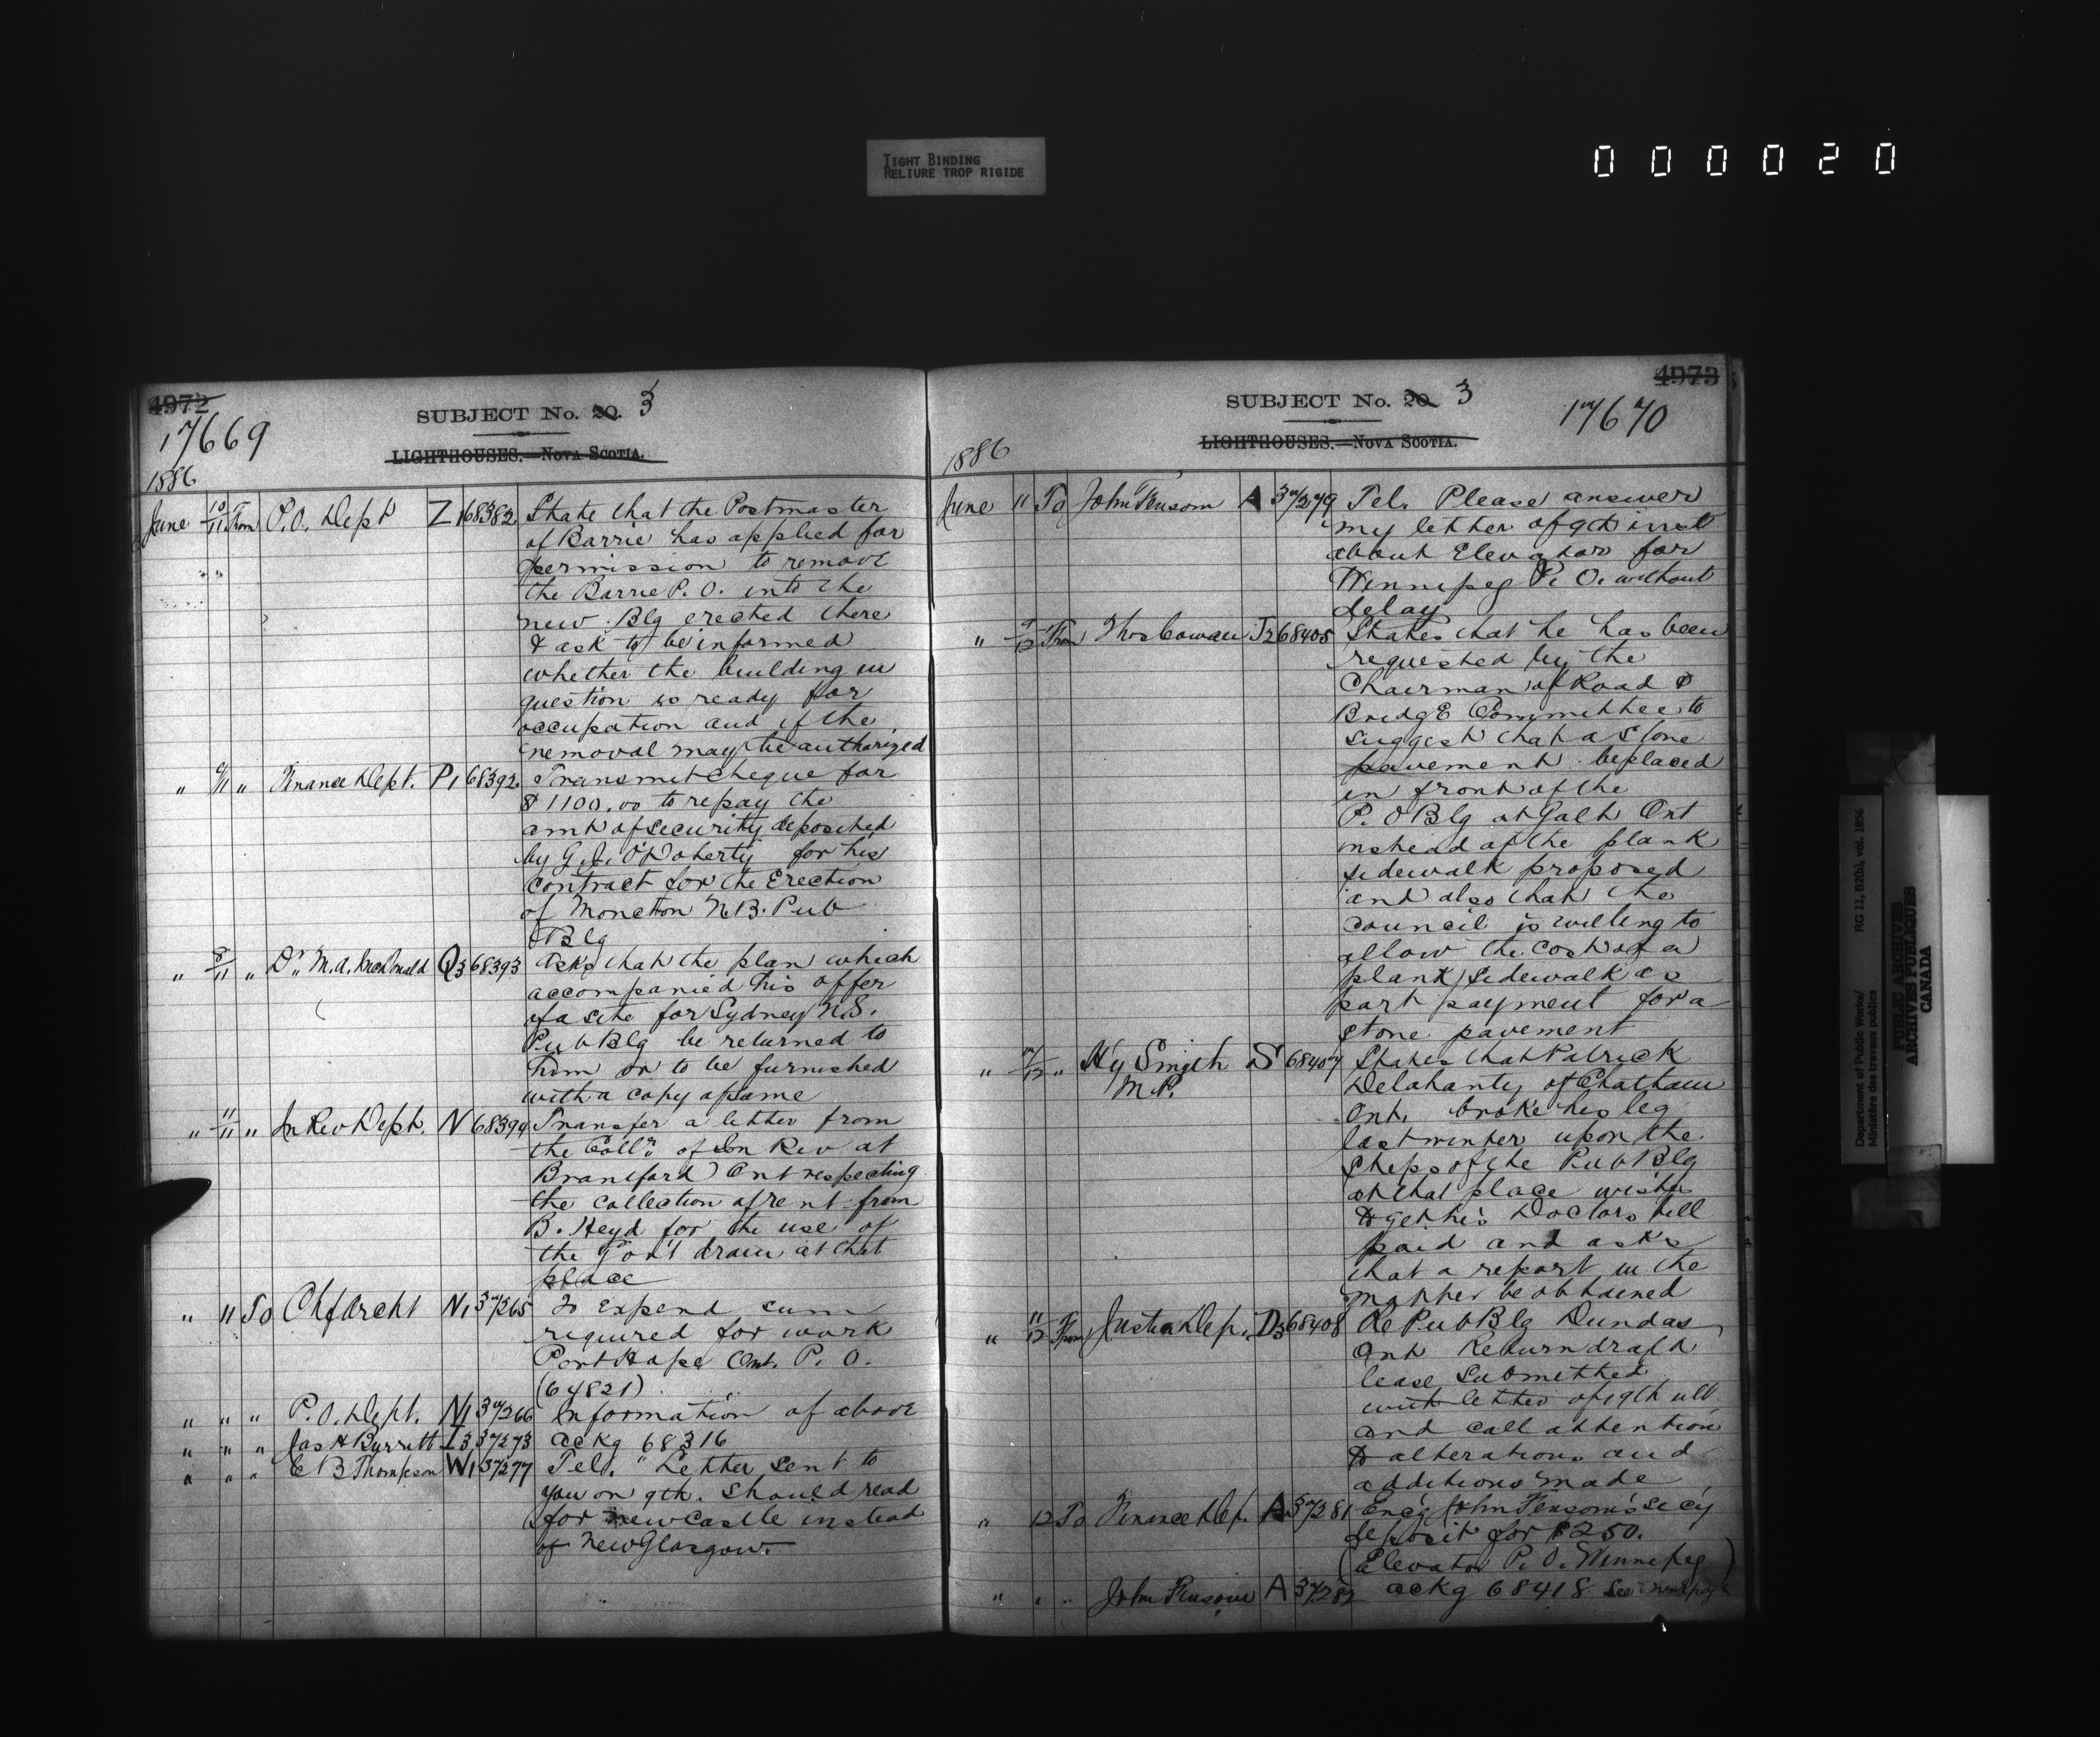 TIGHT BINDING
RELIURE TROP RIGIDE
000020
4972
17669
SUBJECT No. 20. 3
LIGHTHOUSES.—NOVA SCOTIA.
1886
June 10/11 From P.O. Dept Z1 68382 State that the Postmaster
of Barrie has applied for
permission to remove
the Barrie P.O. into the
new Blg erected there
& ask to be informed
whether the building in
question is ready for
occupation and if the
removal may be authorized
" 9/11 " Finance Dept. P1 68392 Transmit cheque for
$1100.00 to repay the
amt of security deposited
by G.J. O'Doherty for his
contract for the Erection
of Moncton N.B. Pub
Blg
" 8/11 " Dr. M.A. McDonald Q3 68393 Asks that the plan which
accompanied his offer
of a site for Sydney N.S.
Pub Blg be returned to
him or to be furnished
with a copy of same
" 11/11 " In Rev Dept. N 68394 Transfer a letter from
the Collr. of In Rev at
Brantford Ont respecting
the collection of rent from
B. Heyd for the use of
the Gov't drain at that
place
" 11 To Ch f Archt N1 37265 To Expend sum
required for work
Port Hope Ont. P.O.
(64821)
" " " P.O. Dept. N1 37266 Information of above
" " " Jas H Burritt I3 37273 ackg 68316
" " " C B Thompson W1 37277 Tel. "Letter sent to
you on 9th. should read
for Newcastle instead
of New Glasgow.
4973
SUBJECT No. 20. 3
17670
LIGHTHOUSES.—NOVA SCOTIA.
1886
June 11 To John Fensom A 37279 Tel. Please answer
my letter of 9th inst
about Elevator for
Winnipeg P.O. without
delay
" 9/12 From Thos Cowan J2 68405 States that he has been
requested by the
Chairman of Road &
Bridge Committee to
suggest that a stone
pavement be placed
in front of the
P.O Blg at Galt Ont
instead of the plank
sidewalk proposed
and also that the
council is willing to
allow the cost of a
plank sidewalk as
part payment for a
stone pavement
" 7/12 " Hy Smyth M.P. S 68407 States that Patrick
Delahanty of Chatham
Ont. broke his leg
last winter upon the
steps of the Pub Blg
at that place wishes
to get his Doctors bill
paid and asks
that a report in the
matter be obtained
" 11/12 From Justice Dep. D3 68408 Re Pub Blg Dundas
Ont Return draft
lease submitted
with letter of 19th ult
and call attention
to alterations and
additions made
" 12 To Finance Dep. A 37281 Enc'g John Fensom's sec'y
deposit for $250.
(Elevator P.O. Winnipeg)
" " " John Fensom A 37282 ackg 68418 See
Department of Public Works/
Ministère des travaux publics
RG 11, B2(b), vol. 1856
PUBLIC ARCHIVES
ARCHIVES PUBLIQUES
CANADA